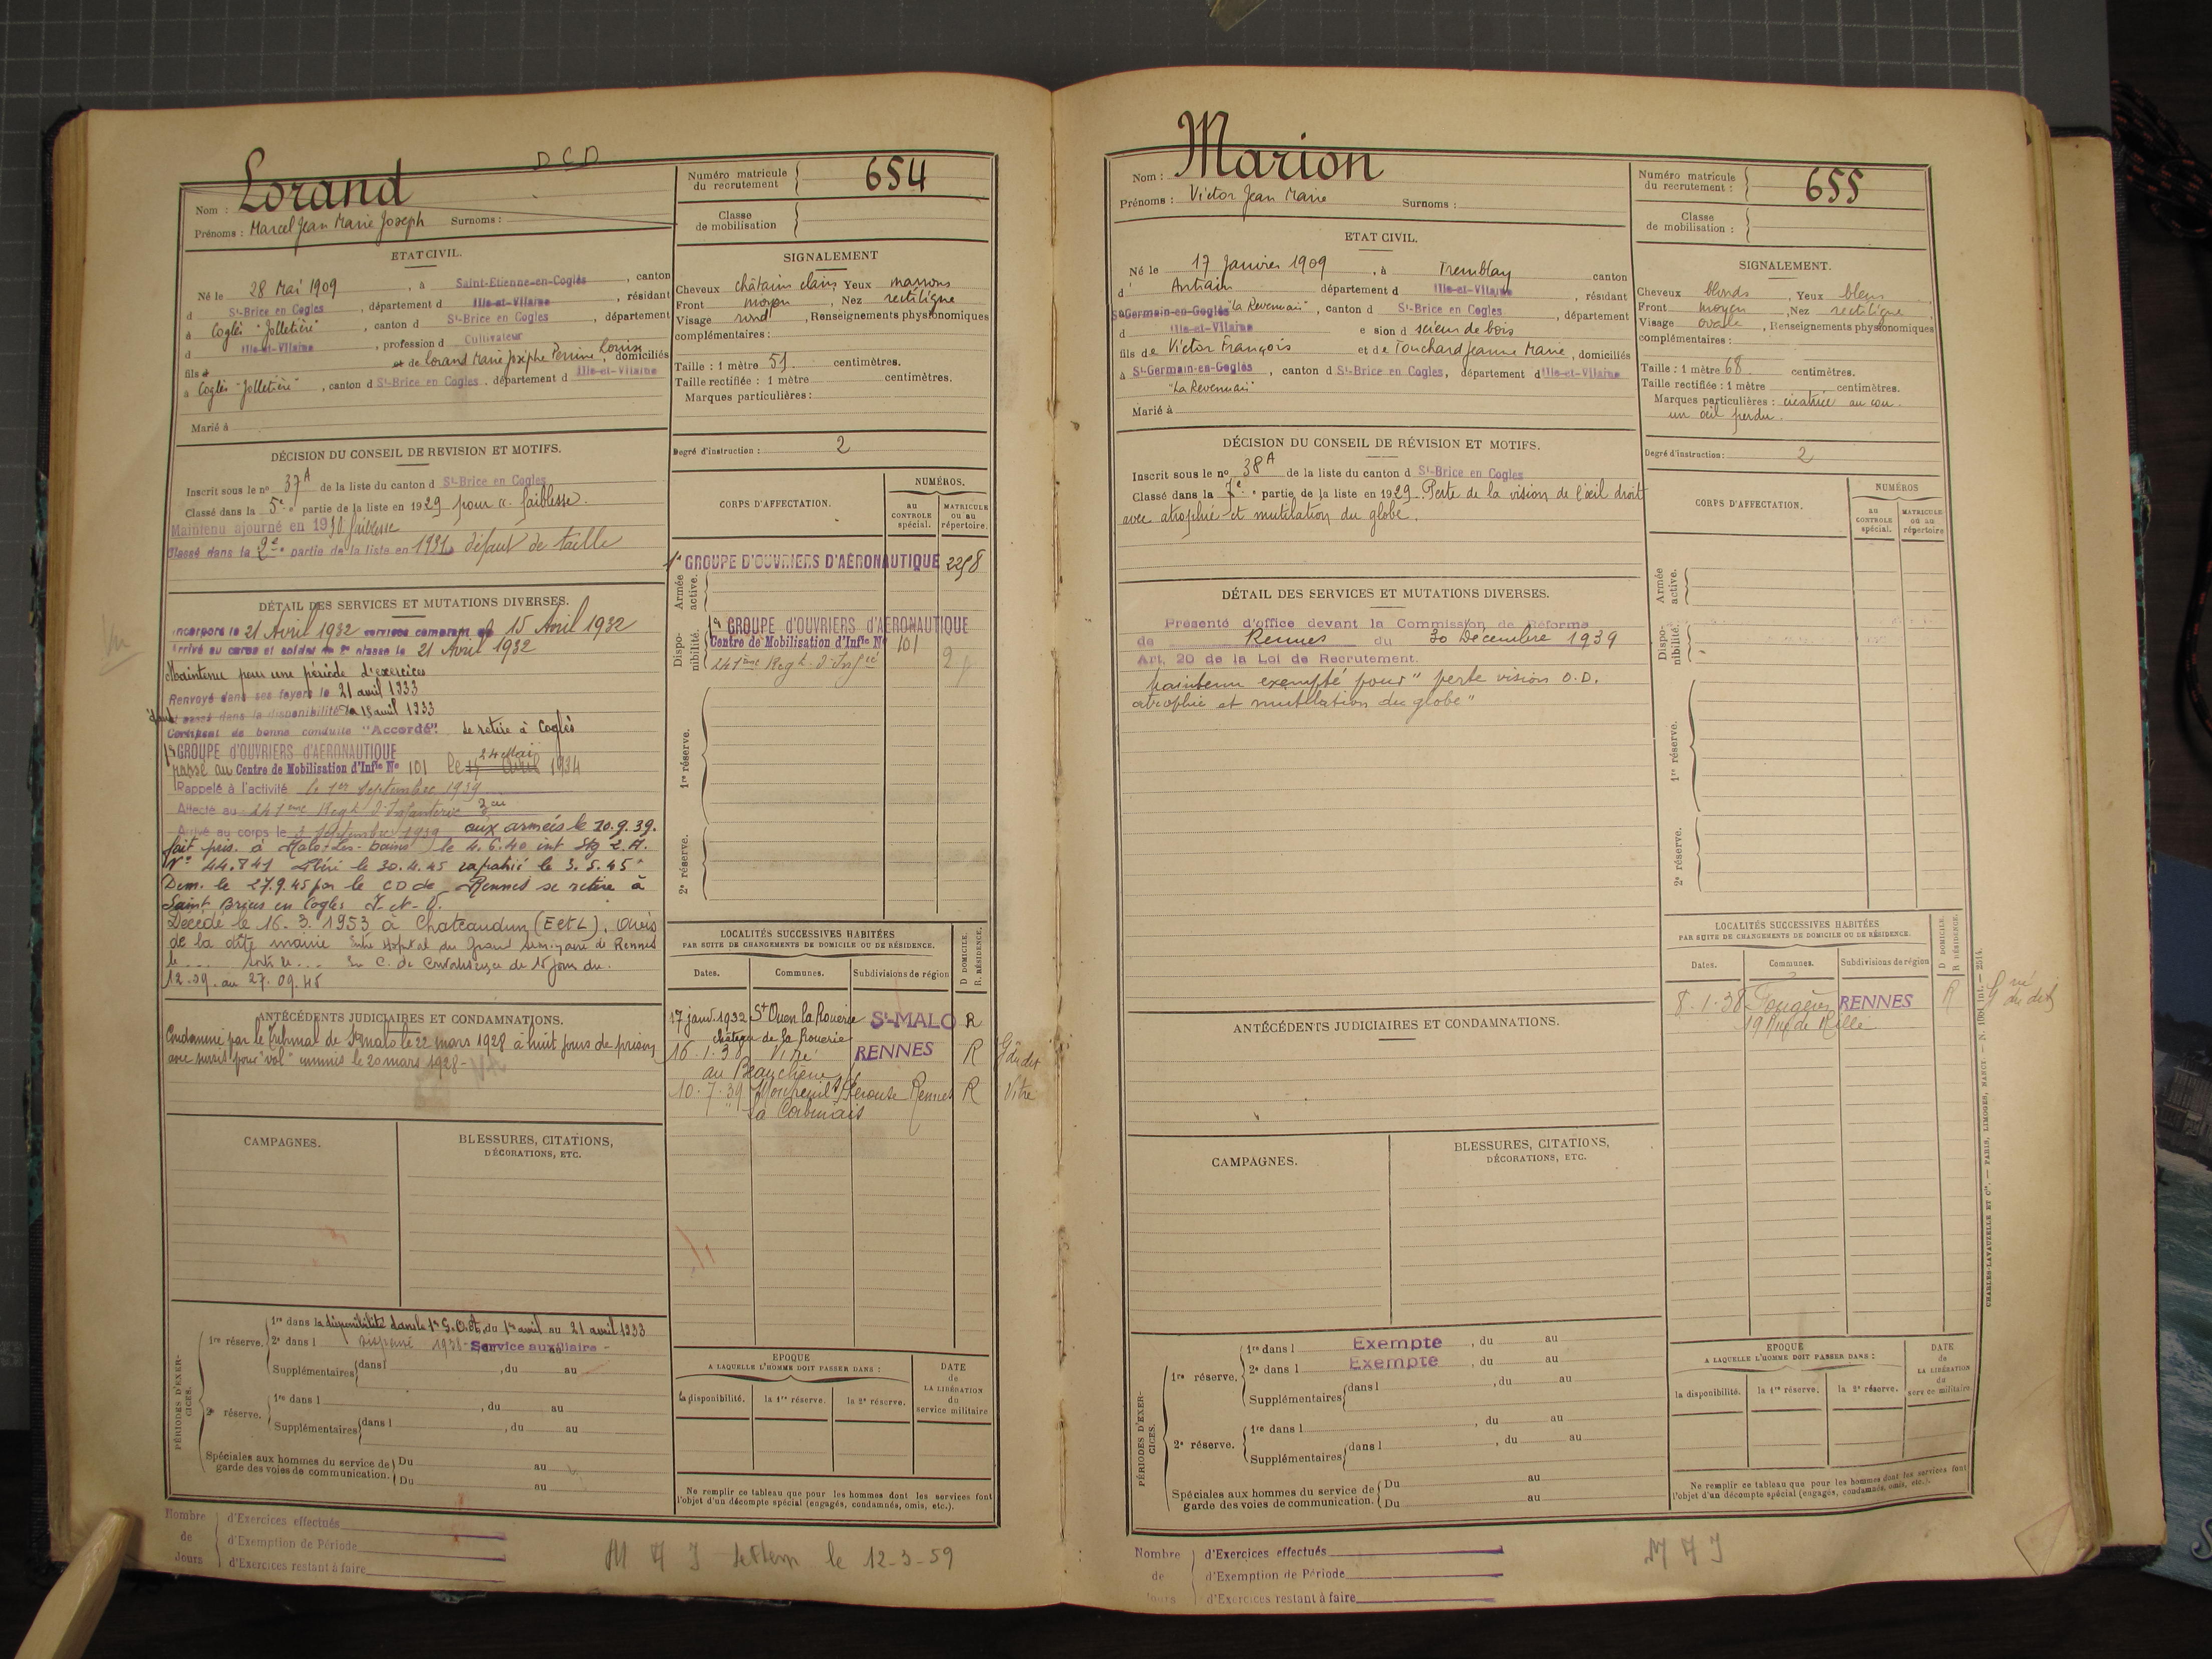 DCD
Lorand
Nom :
Prénoms : Marcel Jean Marie Joseph Surnoms :
Numéro matricule du recrutement 654
Classe de mobilisation
ETAT CIVIL.
Né le 28 Mai 1909, à Saint-Etienne-en-Coglès, canton
d St-Brice en Cogles, département d Ille-et-Vilaine, résidant
à Coglès "Jolletière", canton d St-Brice en Cogles, département
d Ille-et-Vilaine, profession d Cultivateur
fils d et de Lorand Marie Josèphe Perrine Louise, domiciliés
à Coglès "Jolletière", canton d St-Brice en Cogles, département d Ille-et-Vilaine
Marié à
SIGNALEMENT
Cheveux châtains clairs Yeux marrons
Front moyen, Nez rectiligne
Visage rond, Renseignements physionomiques
complémentaires :
Taille : 1 mètre 51 centimètres.
Taille rectifiée : 1 mètre centimètres.
Marques particulières :
Degré d'instruction : 2
DÉCISION DU CONSEIL DE REVISION ET MOTIFS.
Inscrit sous le no 37A de la liste du canton d St-Brice en Cogles
Classé dans la 5e partie de la liste en 1929 pour faiblesse.
Maintenu ajourné en 1930 faiblesse
Classé dans la 2e partie de la liste en 1931 défaut de taille
CORPS D'AFFECTATION.
NUMÉROS.
au CONTROLE spécial.
MATRICULE ou au répertoire.
Armée active.
1er GROUPE D'OUVRIERS D'AÉRONAUTIQUE 2258
Disponibilité.
1er GROUPE D'OUVRIERS D'AÉRONAUTIQUE
Centre de Mobilisation d'Infie No 101
241ème Regt d'Infie
1re réserve.
2e réserve.
DÉTAIL DES SERVICES ET MUTATIONS DIVERSES.
Incorporé le 21 Avril 1932 services comptant du 15 Avril 1932
Arrivé au corps et soldat de 2e classe le 21 Avril 1932
Maintenu pour une période d'exercices
Renvoyé dans ses foyers le 21 avril 1933
passé dans la disponibilité le 15 avril 1933
Certificat de bonne conduite "Accordé". se retire à Coglès
1er GROUPE D'OUVRIERS D'AÉRONAUTIQUE
24 Mai
passé au Centre de Mobilisation d'Infie No 101 le 15 avril 1934
Rappelé à l'activité le 1er Septembre 1939
Affecté au 241ème Regt d'Infanterie
Arrivé au corps le 3 Septembre 1939 aux armées le 10.9.39.
fait pris. à Malo-les-bains le 4.6.40 int Stg 2.A.
No 44.841 libéré le 30.4.45 rapatrié le 3.5.45
Dem. le 27.9.45 par le CD de Rennes se retire à
Saint Brieus en Cogles I-et-V.
Décédé le 16.3.1953 à Chateaudun (E et L). Avis
de la dite mairie Entré Hopital du Grand Séminaire de Rennes
le ... sorti le ... En C. de Convalescence de 15 jours du
12.09. au 27.09.45
LOCALITÉS SUCCESSIVES HABITÉES
PAR SUITE DE CHANGEMENTS DE DOMICILE OU DE RÉSIDENCE.
Dates. Communes. Subdivisions de région D DOMICILE. R RÉSIDENCE.
17 janv. 1932 St Ouen la Rouerie St-MALO R
château de la Rouerie
16.1.38 Vitré RENNES R
au Beauchêne
10.7.39 Rennes R Vitré
ANTÉCÉDENTS JUDICIAIRES ET CONDAMNATIONS.
Condamné par le Tribunal de St malo le 22 mars 1928 à huit jours de prison
avec sursis pour "vol" commis le 20 mars 1928-
CAMPAGNES.
BLESSURES, CITATIONS,
DÉCORATIONS, ETC.
PÉRIODES D'EXERCICES.
1re réserve.
1re dans la disponibilité dans le 1er G.O.A. du 1er avril au 21 avril 1933
2e dans l dispensé 1938 - Service auxiliaire -
Supplémentaires dans l , du au
2e réserve.
1re dans l , du au
Supplémentaires dans l , du au
Spéciales aux hommes du service de garde des voies de communication. Du au
Du au
EPOQUE
A LAQUELLE L'HOMME DOIT PASSER DANS :
la disponibilité. la 1re réserve. la 2e réserve.
DATE de LA LIBÉRATION du service militaire
Ne remplir ce tableau que pour les hommes dont les services font
l'objet d'un décompte spécial (engagés, condamnés, omis, etc.).
Nombre de Jours
d'Exercices effectués
d'Exemption de Période
d'Exercices restant à faire
le 12-3-59
Marion
Nom :
Prénoms : Victor Jean Marie Surnoms :
Numéro matricule du recrutement : 655
Classe de mobilisation :
ETAT CIVIL.
Né le 17 Janvier 1909, à Tremblay canton
d' Antrain département d Ille-et-Vilaine, résidant
St-Germain-en-Coglès "La Revennais", canton d St-Brice en Cogles, département
d Ille-et-Vilaine e sion d scieur de bois
fils de Victor François et de Touchard Jeanne Marie, domiciliés
à St-Germain-en-Coglès, canton d St-Brice en Cogles, département d Ille-et-Vilaine
"La Revennais"
Marié à
SIGNALEMENT.
Cheveux blonds, Yeux bleus
Front moyen, Nez rectiligne
Visage ovale, Renseignements physionomiques
complémentaires :
Taille : 1 mètre 68 centimètres.
Taille rectifiée : 1 mètre centimètres.
Marques particulières : cicatrice au cou.
un oeil perdu.
Degré d'instruction : 2
DÉCISION DU CONSEIL DE RÉVISION ET MOTIFS.
Inscrit sous le no 38A de la liste du canton d St-Brice en Cogles
Classé dans la 7e partie de la liste en 1929 Perte de la vision de l'œil droit
avec atrophie et mutilation du globe.
CORPS D'AFFECTATION.
NUMÉROS
au CONTROLE spécial.
MATRICULE ou au répertoire
Armée active.
Disponibilité.
1re réserve.
2e réserve.
DÉTAIL DES SERVICES ET MUTATIONS DIVERSES.
Présenté d'office devant la Commission de Réforme
de Rennes du 30 Décembre 1939
Art. 20 de la Loi de Recrutement.
Maintenu exempté pour "perte vision O.D.
atrophie et mutilation du globe"
LOCALITÉS SUCCESSIVES HABITÉES
PAR SUITE DE CHANGEMENTS DE DOMICILE OU DE RÉSIDENCE.
Dates. Communes. Subdivisions de région D DOMICILE. R RÉSIDENCE.
8.1.38 Fougères RENNES R
ANTÉCÉDENTS JUDICIAIRES ET CONDAMNATIONS.
CAMPAGNES.
BLESSURES, CITATIONS,
DÉCORATIONS, ETC.
PÉRIODES D'EXERCICES.
1re réserve.
1re dans l Exempte , du au
2e dans l Exempte , du au
Supplémentaires dans l , du au
2e réserve.
1re dans l , du au
Supplémentaires dans l , du au
Spéciales aux hommes du service de garde des voies de communication. Du au
Du au
EPOQUE
A LAQUELLE L'HOMME DOIT PASSER DANS :
la disponibilité. la 1re réserve. la 2e réserve.
DATE de LA LIBÉRATION du service militaire
Ne remplir ce tableau que pour les hommes dont les services font
l'objet d'un décompte spécial (engagés, condamnés, omis, etc.).
Nombre de Jours
d'Exercices effectués
d'Exemption de Période
d'Exercices restant à faire
CHARLES-LAVAUZELLE ET Cie. — PARIS, LIMOGES, NANCY.